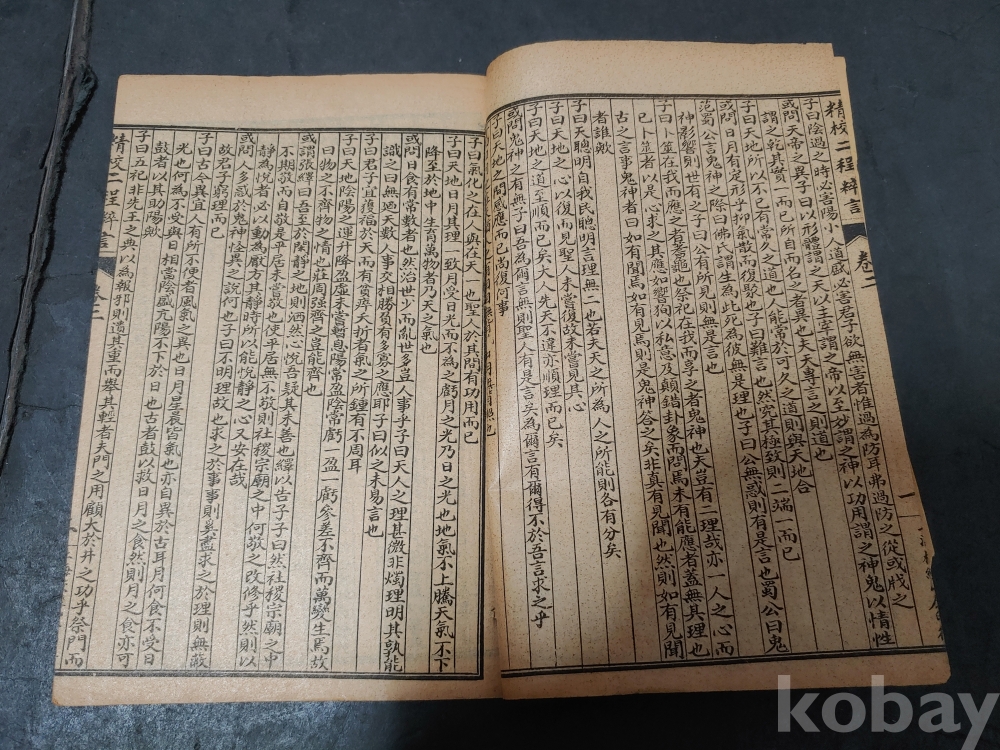 精校二程粹言 卷二
子曰陰過之時必害陽小人道盛必害君子欲無害者惟過為防耳弗過防之從或戕之
或問天帝之異子曰以形體謂之天以主宰謂之帝以至妙謂之神以功用謂之神鬼以情性
謂之乾其實一而已所自而名之者異也夫天專言之則道也
子曰天地所以不已有常久之道也人能常於可久之道則與天地合
或問日月有定形乎抑氣散而復聚也子曰難言也然究其極致則二端一而已
范蜀公言鬼神之際曰佛氏謂生為此死為彼無是理也子曰公無惑則有是言也蜀公曰鬼
神影響則世有之子曰公有所見則無是言也
子曰卜筮在我而應之者蓍龜也祭祀在我而享之者鬼神也夫豈有二理哉亦一人之心而
已卜筮者以是心求之其應如響徇以私意及顛錯卦象而問焉未有能應者蓋無其理也
古之言事鬼神者曰如有聞焉如有見焉則是鬼神答之矣非真有見聞也然則如有見聞
者誰歟
子曰天聰明自我民聰明言理無二也若夫天之所為人之所能則各有分矣
子曰天地之心以復而見聖人未嘗復故未嘗見其心
子曰天地之道至順而已矣大人先天不違亦順理而已矣
或問鬼神之有無子曰吾為爾言無則聖人有是言矣為爾言有爾得不於吾言求之乎
子曰天地之間感應而已尚復何事
子曰氣化之在人與在天一也聖人於其間有功用而已
子曰天地日月其理一致月受日光而不為之虧月之光乃日之光也地氣不上騰天氣不下
降至於地中生育萬物者乃天之氣也
或問日食有常數者也然治世少而亂世多豈人事乎子曰天人之理甚微非燭理明其孰能
識之曰無過天數人事交相勝負有多寡之應耶子曰似之未易言也
子曰君子宜獲福於天而有貧瘁夭折者氣之所鍾有不周耳
子曰天地陰陽之運升降盈虛未嘗暫息陽常盈陰常虧一盈一虧參差不齊而萬變生焉故
曰物之不齊物之情也莊周強齊之豈能齊也
或謂張繹曰吾至於閑靜之地則洒然心悅吾疑其未善也繹以告子子曰然社稷宗廟之中
不期敬而自敬是平居未嘗敬也使平居無不敬則社稷宗廟之中何敬之改修乎然則以
靜為悅者必以動為厭方其靜時所以能悅靜之心又安在哉
或問人多惑於鬼神怪異之說何也子曰不明理故也求之於事事則奚盡求之於理則無蔽
故君子窮理而已
子曰古今異宜人有所不便者風氣之異也日月星辰皆氣也亦自異於古耳月何食不受日
光也何為不受與日相當陰盛亢陽不下於日也古者鼓以救日月之食然則月之食亦可
鼓者以其助陽歟
子曰五祀非先王之典以為報邪則遺其重而舉其輕者夫門之用顧大於井之功乎祭門而
精校二程粹言 卷二
kobay